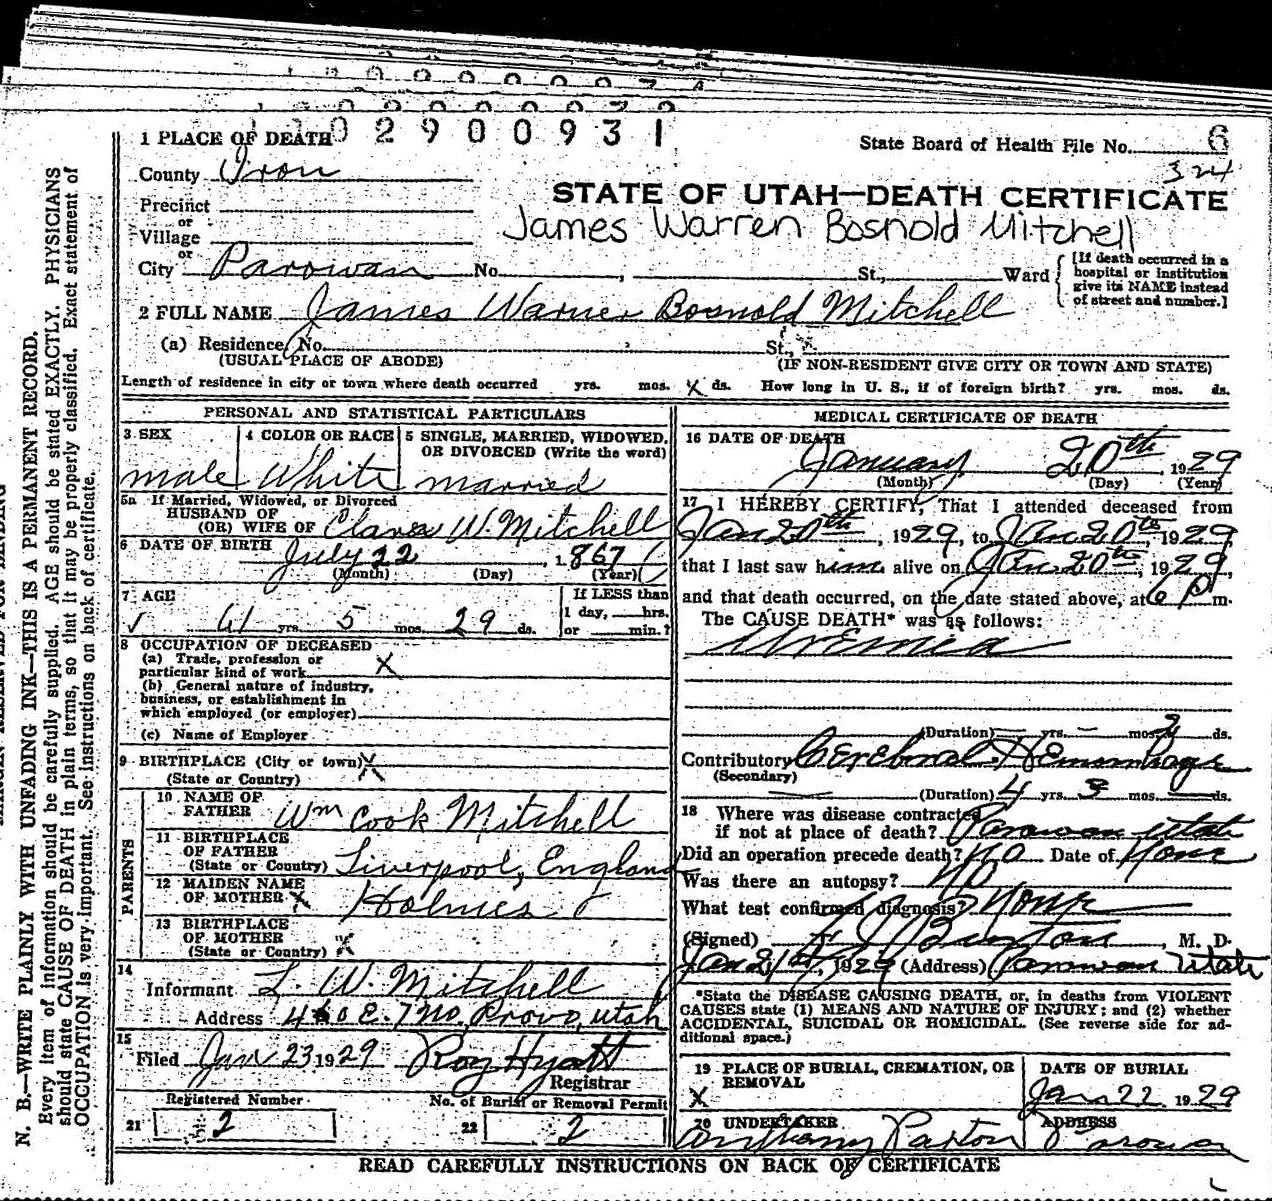 02900931
1 PLACE OF DEATH
State Board of Health File No. 6
324
County Iron
STATE OF UTAH—DEATH CERTIFICATE
Precinct
or
Village
James Warren Bosnold Mitchell
or
City Parowan No. , St., Ward
[If death occurred in a hospital or institution give its NAME instead of street and number.]
2 FULL NAME James Warner Bosnold Mitchell
(a) Residence, No. , St.,
(USUAL PLACE OF ABODE) (IF NON-RESIDENT GIVE CITY OR TOWN AND STATE)
Length of residence in city or town where death occurred yrs. mos. X ds. How long in U. S., if of foreign birth? yrs. mos. ds.
PERSONAL AND STATISTICAL PARTICULARS
3 SEX 4 COLOR OR RACE 5 SINGLE, MARRIED, WIDOWED,
OR DIVORCED (Write the word)
male White married
5a If Married, Widowed, or Divorced
HUSBAND OF
(OR) WIFE OF Clara W. Mitchell
6 DATE OF BIRTH July 22, 1867
(Month) (Day) (Year)
7 AGE If LESS than
1 day, hrs.
61 yrs. 5 mos. 29 ds. or min.?
8 OCCUPATION OF DECEASED
(a) Trade, profession or
particular kind of work X
(b) General nature of industry,
business, or establishment in
which employed (or employer)
(c) Name of Employer
9 BIRTHPLACE (City or town) X
(State or Country)
PARENTS
10 NAME OF
FATHER Wm Cook Mitchell
11 BIRTHPLACE
OF FATHER
(State or Country) Liverpool, England
12 MAIDEN NAME
OF MOTHER X Holmes
13 BIRTHPLACE
OF MOTHER
(State or Country) X
14
Informant L. W. Mitchell
Address 460 E. 7 No. Provo, Utah
15
Filed Jan 23 1929 Roy Hyatt
Registrar
Registered Number No. of Burial or Removal Permit
21 2 22 2
MEDICAL CERTIFICATE OF DEATH
16 DATE OF DEATH
January 20th, 1929
(Month) (Day) (Year)
17 I HEREBY CERTIFY, That I attended deceased from
Jan 20th, 1929, to Jan 20th, 1929,
that I last saw him alive on Jan 20th, 1929,
and that death occurred, on the date stated above, at 6 P m.
The CAUSE DEATH* was as follows:
Uremia
(Duration) yrs. — mos. 2 ds.
Contributory Cerebral Hemorrhage
(Secondary)
(Duration) 4 yrs. 3 mos. — ds.
18 Where was disease contracted
if not at place of death? Parowan Utah
Did an operation precede death? No Date of None
Was there an autopsy? No
What test confirmed diagnosis? None
(Signed) Burton, M. D.
Jan 21st, 1929 (Address) Parowan Utah
*State the DISEASE CAUSING DEATH, or, in deaths from VIOLENT
CAUSES state (1) MEANS AND NATURE OF INJURY; and (2) whether
ACCIDENTAL, SUICIDAL OR HOMICIDAL. (See reverse side for ad-
ditional space.)
19 PLACE OF BURIAL, CREMATION, OR
REMOVAL
X
DATE OF BURIAL
Jan 22 1929
20 UNDERTAKER ADDRESS
Anthony Paxton Parowan
READ CAREFULLY INSTRUCTIONS ON BACK OF CERTIFICATE
N. B.—WRITE PLAINLY WITH UNFADING INK—THIS IS A PERMANENT RECORD.
Every item of information should be carefully supplied. AGE should be stated EXACTLY. PHYSICIANS
should state CAUSE OF DEATH in plain terms, so that it may be properly classified. Exact statement of
OCCUPATION is very important. See instructions on back of certificate.